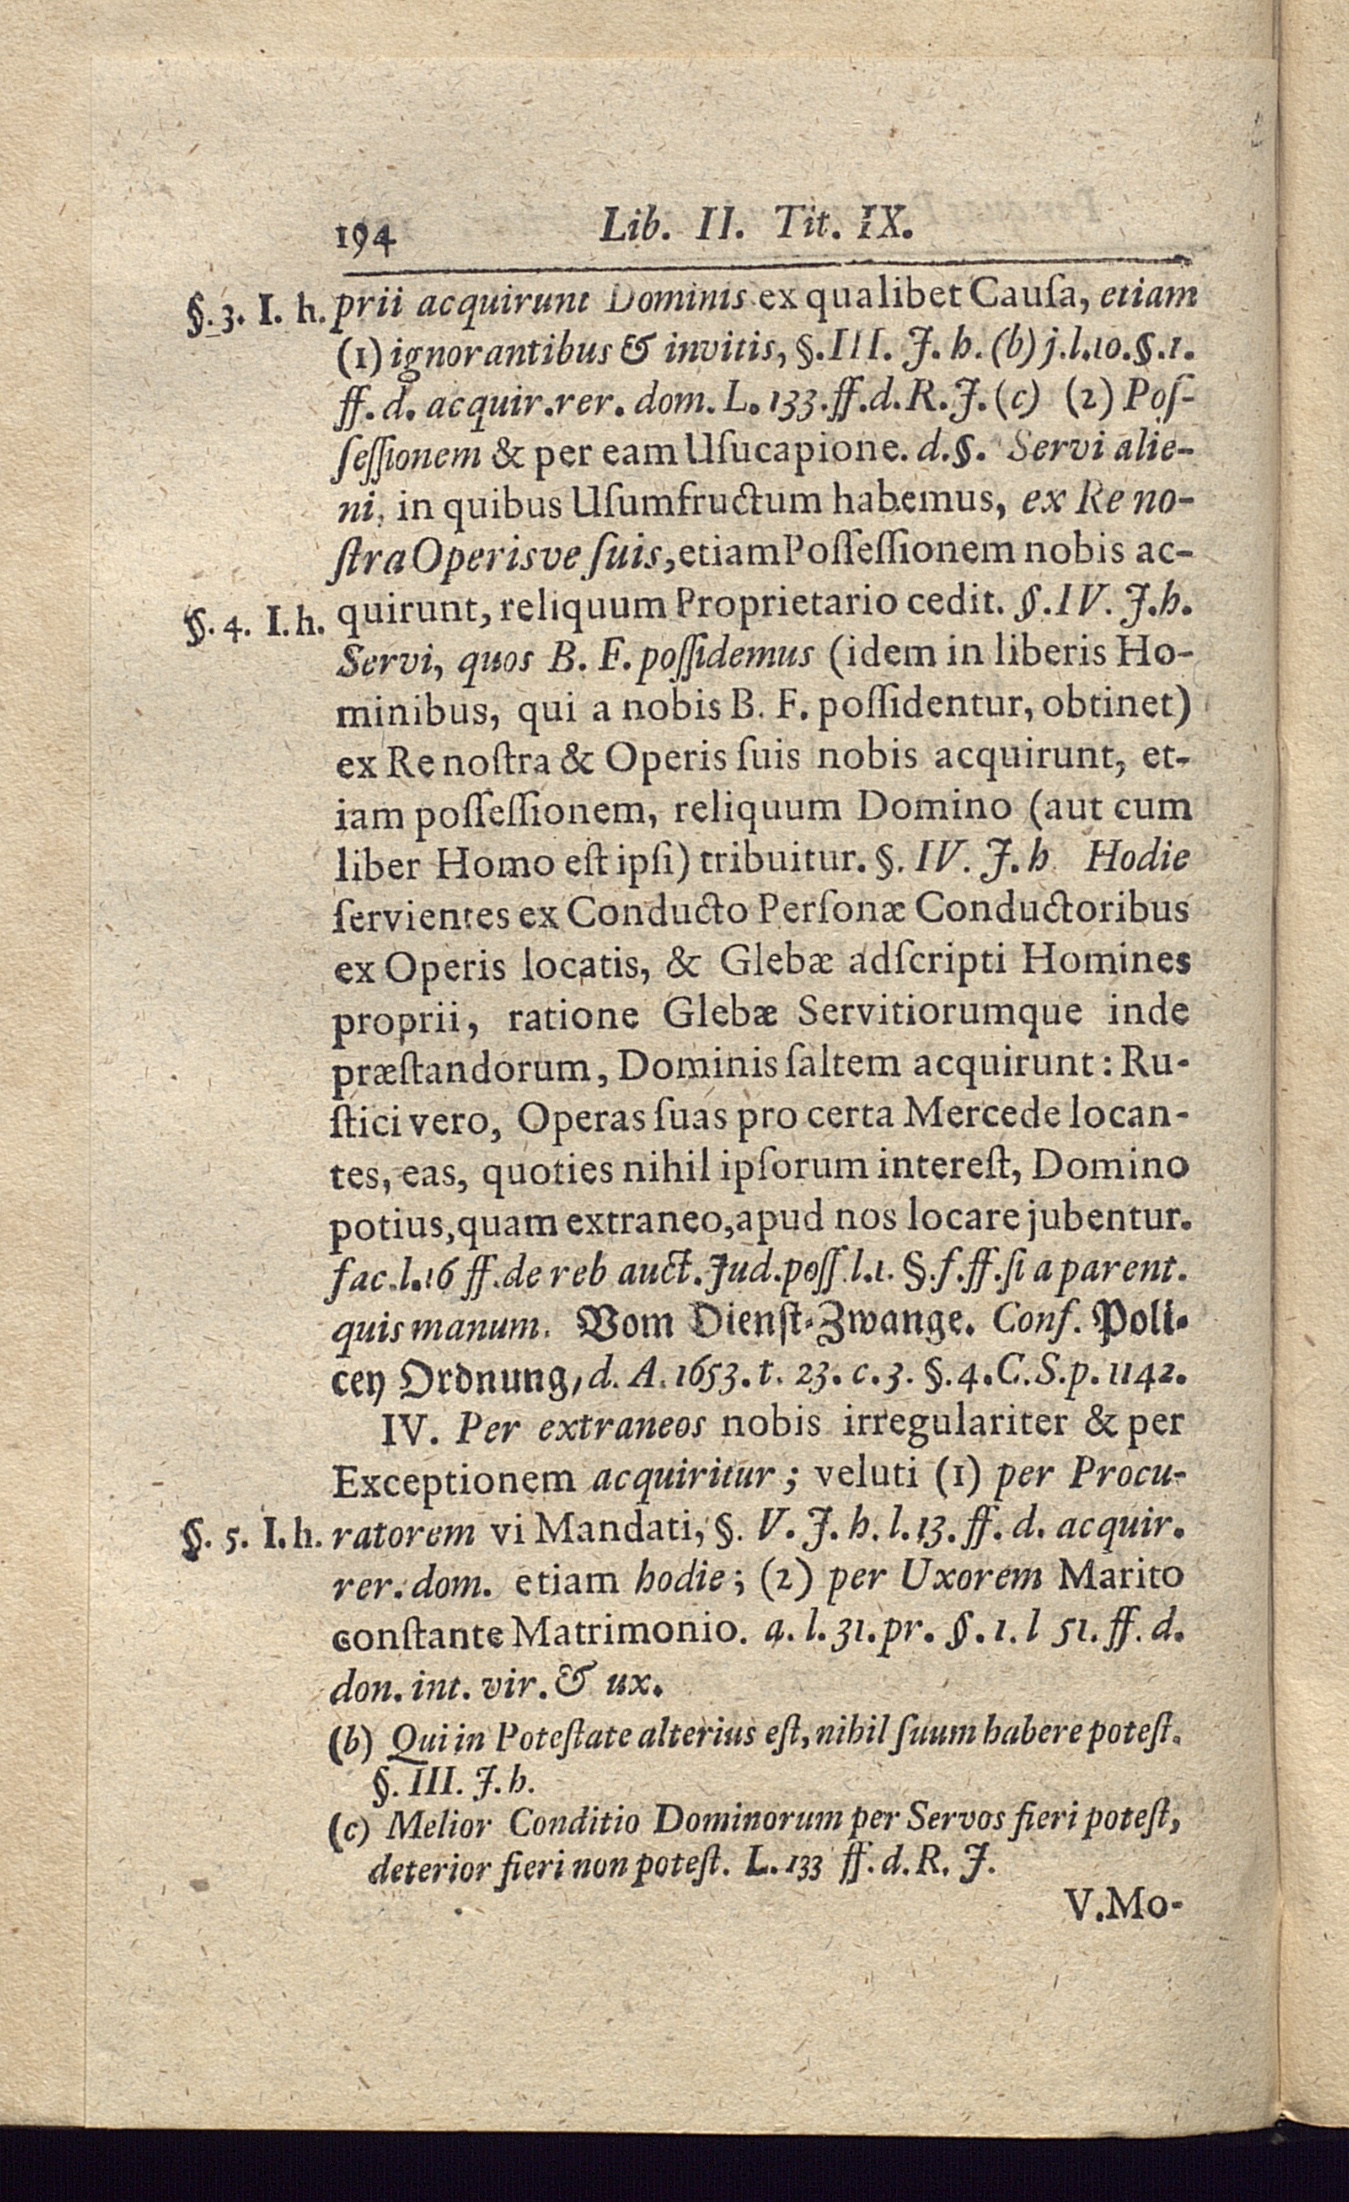 194 Lib. II. Tit. IX.
§. 3. I. h. prii acquirunt Dominis ex qualibet Cauſa, etiam
(1) ignorantibus & invitis, §. III. J. h. (b) j. l. 10. §. 1.
ff. d. acquir. rer. dom. L. 133. ff. d. R. J. (c) (2) Poſ-
ſeſſionem & per eam Uſucapione. d. §. Servi alie-
ni, in quibus Uſumfructum habemus, ex Re no-
ſtra Operisve ſuis, etiam Poſſeſſionem nobis ac-
§. 4. I. h. quirunt, reliquum Proprietario cedit. §. IV. J. h.
Servi, quos B. F. poſſidemus (idem in liberis Ho-
minibus, qui a nobis B. F. poſſidentur, obtinet)
ex Re noſtra & Operis ſuis nobis acquirunt, et-
iam poſſeſſionem, reliquum Domino (aut cum
liber Homo eſt ipſi) tribuitur. §. IV. J. h Hodie
ſervientes ex Conducto Perſonæ Conductoribus
ex Operis locatis, & Glebæ adſcripti Homines
proprii, ratione Glebæ Servitiorumque inde
præſtandorum, Dominis ſaltem acquirunt: Ru-
ſtici vero, Operas ſuas pro certa Mercede locan-
tes, eas, quoties nihil ipſorum intereſt, Domino
potius, quam extraneo, apud nos locare jubentur.
fac. l. 16 ff. de reb auct. Jud. poſſ. l. 1. §. f. ff. ſi a parent.
quis manum. Vom Dienſt-Zwange. Conf. Poli-
cey Ordnung, d. A. 1653. t. 23. c. 3. §. 4. C. S. p. 1142.
IV. Per extraneos nobis irregulariter & per
Exceptionem acquiritur; veluti (1) per Procu-
§. 5. I. h. ratorem vi Mandati, §. V. J. h. l. 13. ff. d. acquir.
rer. dom. etiam hodie; (2) per Uxorem Marito
conſtante Matrimonio. a. l. 31. pr. §. 1. l 51. ff. d.
don. int. vir. & ux.
(b) Qui in Poteſtate alterius eſt, nihil ſuum habere poteſt.
§. III. J. h.
(c) Melior Conditio Dominorum per Servos fieri poteſt,
deterior fieri non poteſt. L. 133 ff. d. R. J.
V. Mo-